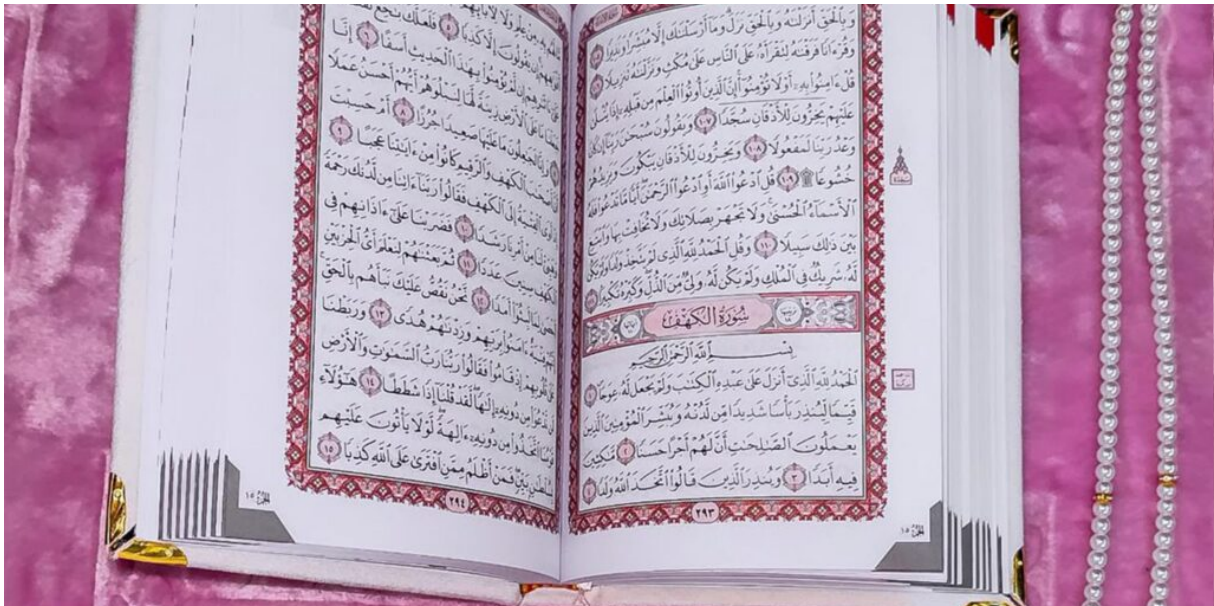 وَبِالْحَقِّ أَنزَلْنَٰهُ وَبِالْحَقِّ نَزَلَ وَمَا أَرْسَلْنَٰكَ إِلَّا مُبَشِّرًا وَنَذِيرًا
وَقُرْءَانًا فَرَقْنَٰهُ لِتَقْرَأَهُ عَلَى النَّاسِ عَلَىٰ مُكْثٍ وَنَزَّلْنَٰهُ تَنزِيلًا
قُلْ ءَامِنُوا بِهِ أَوْ لَا تُؤْمِنُوا إِنَّ الَّذِينَ أُوتُوا الْعِلْمَ مِن قَبْلِهِ إِذَا يُتْلَىٰ
عَلَيْهِمْ يَخِرُّونَ لِلْأَذْقَانِ سُجَّدًا ١٠٧ وَيَقُولُونَ سُبْحَٰنَ رَبِّنَا إِن كَانَ
وَعْدُ رَبِّنَا لَمَفْعُولًا ١٠٨ وَيَخِرُّونَ لِلْأَذْقَانِ يَبْكُونَ وَيَزِيدُهُمْ
خُشُوعًا ۩ ١٠٩ قُلِ ادْعُوا اللَّهَ أَوِ ادْعُوا الرَّحْمَٰنَ أَيًّا مَّا تَدْعُوا فَلَهُ
الْأَسْمَاءُ الْحُسْنَىٰ وَلَا تَجْهَرْ بِصَلَاتِكَ وَلَا تُخَافِتْ بِهَا وَابْتَغِ
بَيْنَ ذَٰلِكَ سَبِيلًا ١١٠ وَقُلِ الْحَمْدُ لِلَّهِ الَّذِي لَمْ يَتَّخِذْ وَلَدًا وَلَمْ يَكُن
لَّهُ شَرِيكٌ فِي الْمُلْكِ وَلَمْ يَكُن لَّهُ وَلِيٌّ مِّنَ الذُّلِّ وَكَبِّرْهُ تَكْبِيرًا
سُورَةُ الْكَهْفِ
بِسْمِ اللَّهِ الرَّحْمَٰنِ الرَّحِيمِ
الْحَمْدُ لِلَّهِ الَّذِي أَنزَلَ عَلَىٰ عَبْدِهِ الْكِتَٰبَ وَلَمْ يَجْعَل لَّهُ عِوَجًا ١
قَيِّمًا لِّيُنذِرَ بَأْسًا شَدِيدًا مِّن لَّدُنْهُ وَيُبَشِّرَ الْمُؤْمِنِينَ الَّذِينَ
يَعْمَلُونَ الصَّٰلِحَٰتِ أَنَّ لَهُمْ أَجْرًا حَسَنًا ٢ مَّٰكِثِينَ
فِيهِ أَبَدًا ٣ وَيُنذِرَ الَّذِينَ قَالُوا اتَّخَذَ اللَّهُ وَلَدًا ٤
٢٩٣
مِنْ عِلْمٍ وَلَا لِآبَائِهِمْ
إِن يَقُولُونَ إِلَّا كَذِبًا ٥ فَلَعَلَّكَ بَٰخِعٌ
إِن لَّمْ يُؤْمِنُوا بِهَٰذَا الْحَدِيثِ أَسَفًا ٦ إِنَّا
مَا عَلَى الْأَرْضِ زِينَةً لَّهَا لِنَبْلُوَهُمْ أَيُّهُمْ أَحْسَنُ عَمَلًا
وَإِنَّا لَجَٰعِلُونَ مَا عَلَيْهَا صَعِيدًا جُرُزًا ٨ أَمْ حَسِبْتَ
أَنَّ أَصْحَٰبَ الْكَهْفِ وَالرَّقِيمِ كَانُوا مِنْ ءَايَٰتِنَا عَجَبًا ٩
إِذْ أَوَى الْفِتْيَةُ إِلَى الْكَهْفِ فَقَالُوا رَبَّنَا ءَاتِنَا مِن لَّدُنكَ رَحْمَةً
وَهَيِّئْ لَنَا مِنْ أَمْرِنَا رَشَدًا ١٠ فَضَرَبْنَا عَلَىٰ ءَاذَانِهِمْ فِي
الْكَهْفِ سِنِينَ عَدَدًا ١١ ثُمَّ بَعَثْنَٰهُمْ لِنَعْلَمَ أَيُّ الْحِزْبَيْنِ
أَحْصَىٰ لِمَا لَبِثُوا أَمَدًا ١٢ نَّحْنُ نَقُصُّ عَلَيْكَ نَبَأَهُم بِالْحَقِّ
إِنَّهُمْ فِتْيَةٌ ءَامَنُوا بِرَبِّهِمْ وَزِدْنَٰهُمْ هُدًى ١٣ وَرَبَطْنَا
عَلَىٰ قُلُوبِهِمْ إِذْ قَامُوا فَقَالُوا رَبُّنَا رَبُّ السَّمَٰوَٰتِ وَالْأَرْضِ
لَن نَّدْعُوَا مِن دُونِهِ إِلَٰهًا لَّقَدْ قُلْنَا إِذًا شَطَطًا ١٤ هَٰؤُلَاءِ
قَوْمُنَا اتَّخَذُوا مِن دُونِهِ ءَالِهَةً لَّوْلَا يَأْتُونَ عَلَيْهِم
بِسُلْطَٰنٍ بَيِّنٍ فَمَنْ أَظْلَمُ مِمَّنِ افْتَرَىٰ عَلَى اللَّهِ كَذِبًا ١٥
٢٩٤